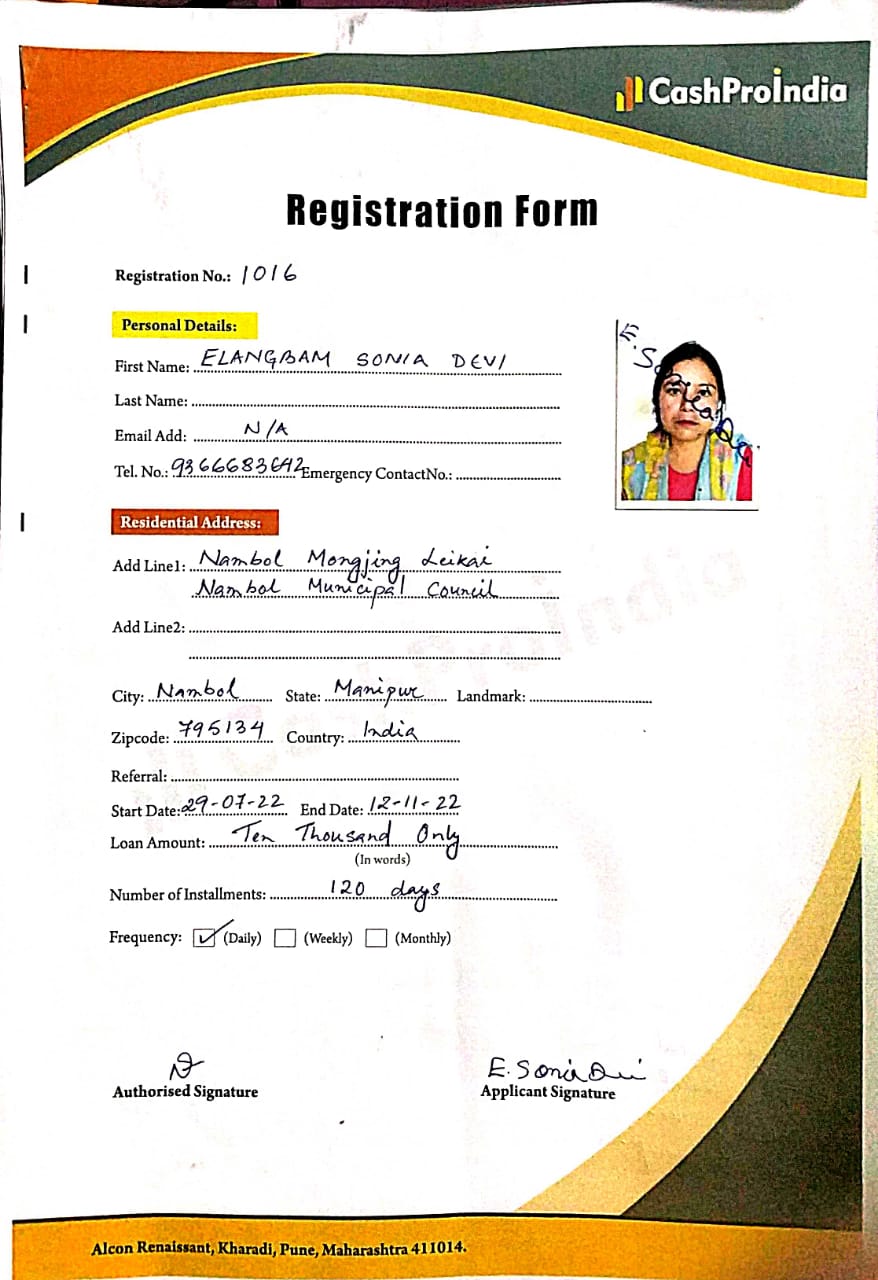 CashProIndia
Registration Form
Registration No.: 1016
Personal Details:
First Name: ELANGBAM SONIA DEVI
Last Name:
Email Add: N/A
Tel. No.: 9366683642 Emergency ContactNo.:
E. Sonia Devi
Residential Address:
Add Line1: Nambol Mongjing Leikai
Nambol Municipal Council
Add Line2:
City: Nambol State: Manipur Landmark:
Zipcode: 795134 Country: India
Referral:
Start Date: 29-07-22 End Date: 12-11-22
Loan Amount: Ten Thousand Only
(In words)
Number of Installments: 120 days
Frequency: (Daily) (Weekly) (Monthly)
E. Sonia Devi
Authorised Signature Applicant Signature
Alcon Renaissant, Kharadi, Pune, Maharashtra 411014.